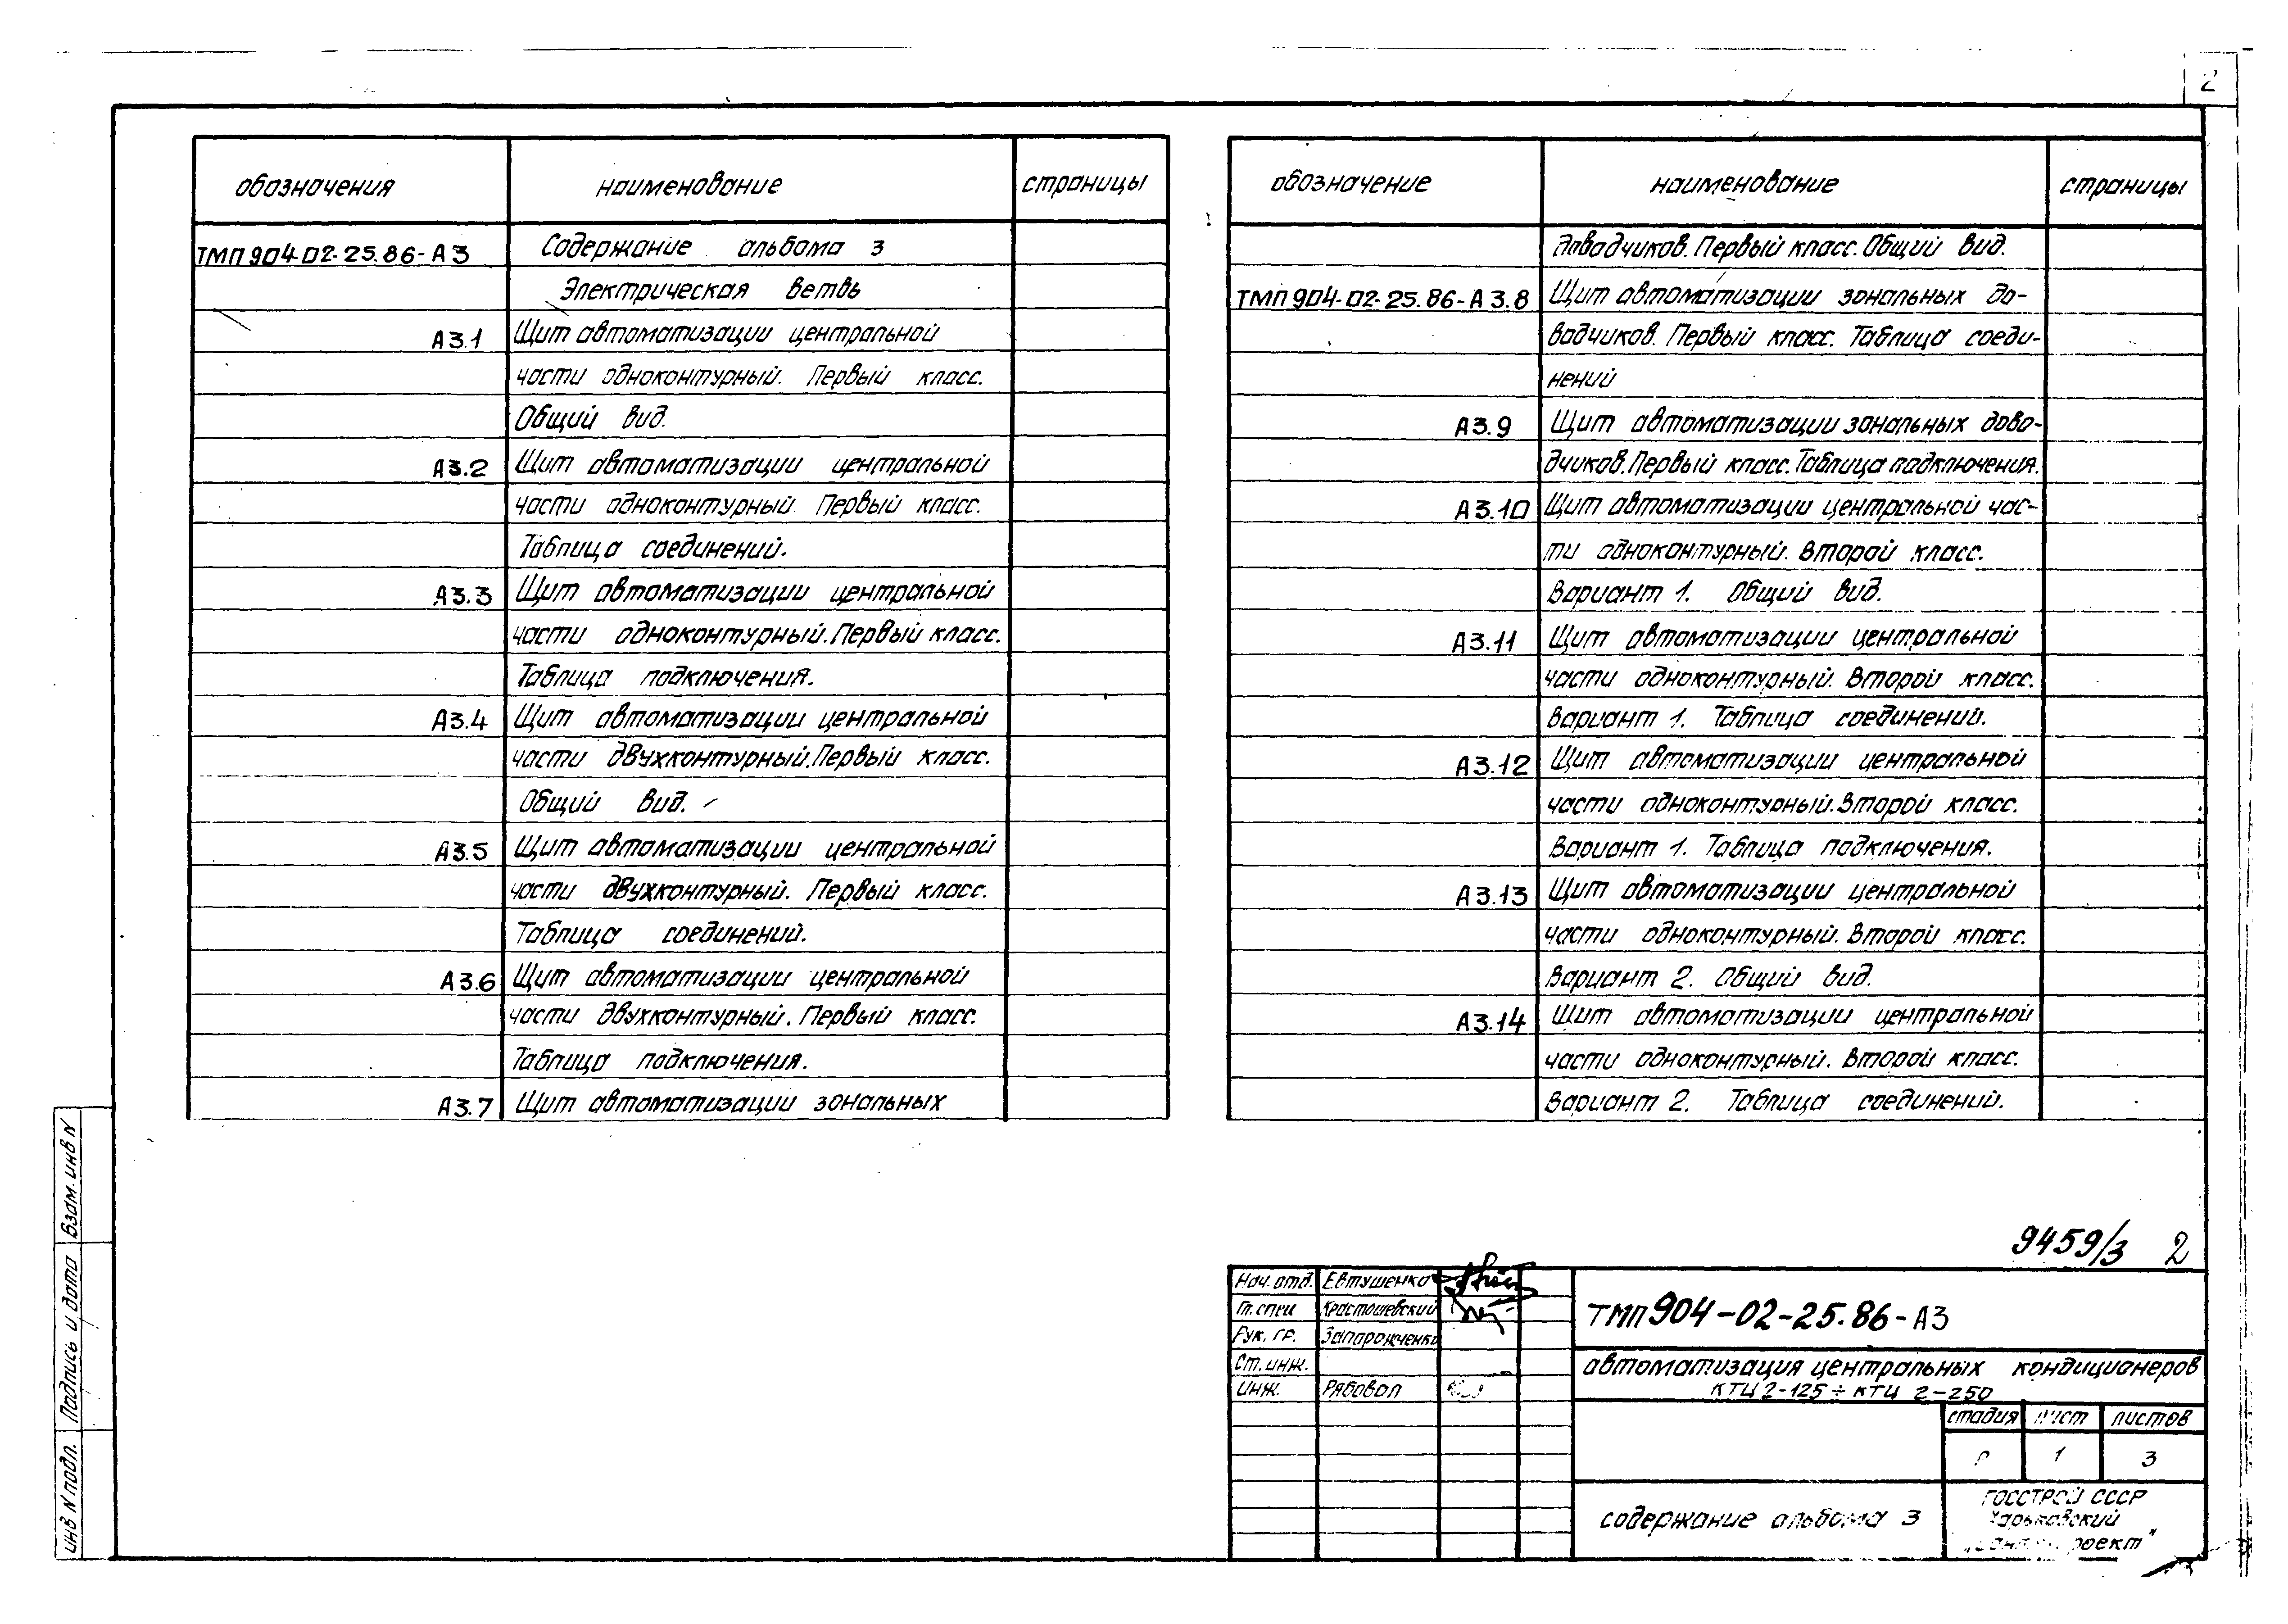 2
обозначения наименование страницы
ТМП 904-02-25.86-А3 Содержание альбома 3
Электрическая ветвь
А3.1 Щит автоматизации центральной
части одноконтурный. Первый класс.
Общий вид.
А3.2 Щит автоматизации центральной
части одноконтурный. Первый класс.
Таблица соединений.
А3.3 Щит автоматизации центральной
части одноконтурный. Первый класс.
Таблица подключения.
А3.4 Щит автоматизации центральной
части двухконтурный. Первый класс.
Общий вид.
А3.5 Щит автоматизации центральной
части двухконтурный. Первый класс.
Таблица соединений.
А3.6 Щит автоматизации центральной
части двухконтурный. Первый класс.
Таблица подключения.
А3.7 Щит автоматизации зональных
обозначение наименование страницы
доводчиков. Первый класс. Общий вид.
ТМП 904-02-25.86-А3.8 Щит автоматизации зональных до-
водчиков. Первый класс. Таблица соеди-
нений
А3.9 Щит автоматизации зональных дово-
дчиков. Первый класс. Таблица подключения.
А3.10 Щит автоматизации центральной час-
ти одноконтурный. Второй класс.
Вариант 1. Общий вид.
А3.11 Щит автоматизации центральной
части одноконтурный. Второй класс.
Вариант 1. Таблица соединений.
А3.12 Щит автоматизации центральной
части одноконтурный. Второй класс.
Вариант 1. Таблица подключения.
А3.13 Щит автоматизации центральной
части одноконтурный. Второй класс.
Вариант 2. Общий вид.
А3.14 Щит автоматизации центральной
части одноконтурный. Второй класс.
Вариант 2. Таблица соединений.
9459/3 2
Нач. отд. Евтушенко
Гл. спец Красташевский
Рук. гр. Запарожченко
Ст. инж.
Инж. Рябовол
ТМП 904-02-25.86-А3
автоматизация центральных кондиционеров
КТЦ 2-125 ÷ КТЦ 2-250
стадия лист листов
Р 1 3
содержание альбома 3
ГОССТРОЙ СССР
Харьковский
Взам. инв N
Подпись и дата
инв N подл.